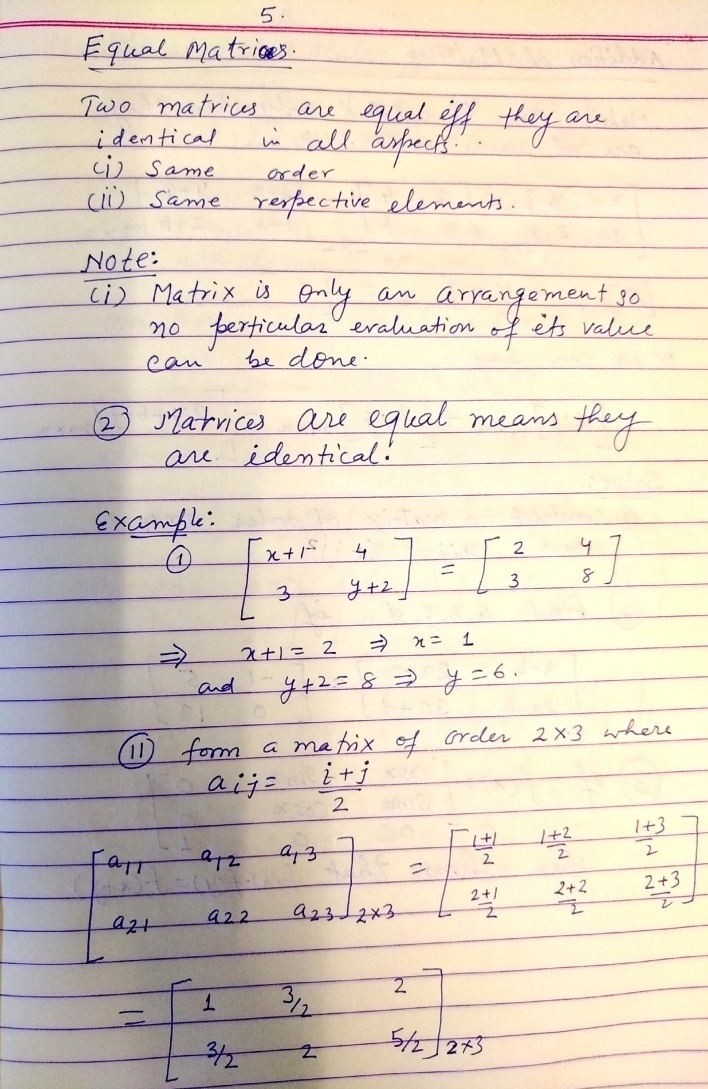 5.
Equal Matrices.
Two matrices are equal iff they are
identical in all aspects..
(i) Same order
(ii) Same respective elements.
Note:
(i) Matrix is only an arrangement so
no perticular evaluation of its value
can be done.
② Matrices are equal means they
are identical.
Example:
① [x+1 4; 3 y+2] = [2 4; 3 8]
⇒ x+1 = 2 ⇒ x = 1
and y+2 = 8 ⇒ y = 6.
(11) form a matrix of order 2×3 where
aij = (i+j)/2
[a11 a12 a13; a21 a22 a23]2×3 = [(1+1)/2 (1+2)/2 (1+3)/2; (2+1)/2 (2+2)/2 (2+3)/2]
= [1 3/2 2; 3/2 2 5/2]2×3